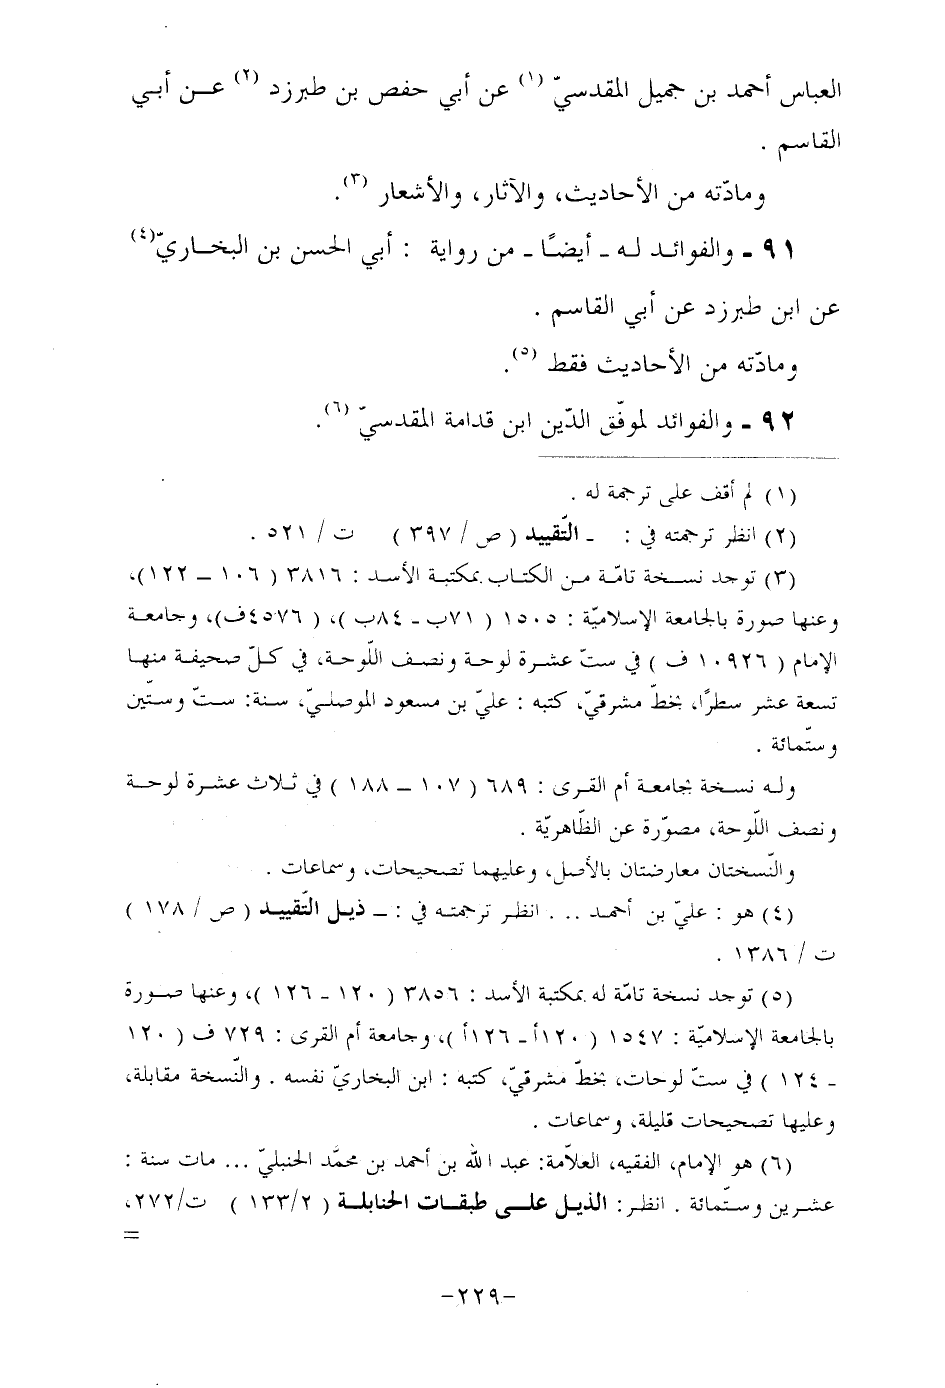 العباس أحمد بن جميل المقدسيّ (١) عن أبي حفص بن طبرزد (٢) عـن أبـي
القاسم .
ومادّته من الأحاديث، والآثار، والأشعار (٣).
٩١ - والفوائد له - أيضًا - من رواية : أبي الحسن بن البخاريّ(٤)
عن ابن طبرزد عن أبي القاسم .
ومادّته من الأحاديث فقط (٥).
٩٢ - والفوائد لموفّق الدّين ابن قدامة المقدسيّ (٦).
(١) لم أقف على ترجمة له .
(٢) انظر ترجمته في : - التّقييد ( ص / ٣٩٧ ) ت / ٥٢١ .
(٣) توجد نسخة تامّة من الكتاب بمكتبة الأسد : ٣٨١٦ ( ١٠٦ – ١٢٢)،
وعنها صورة بالجامعة الإسلاميّة : ١٥٠٥ ( ٧١ب - ٨٤ب )، ( ٤٥٧٦ف)، وجامعة
الإمام ( ١٠٩٢٦ ف ) في ستّ عشرة لوحة ونصف اللّوحة، في كلّ صحيفة منها
تسعة عشر سطرًا، بخطّ مشرقيّ، كتبه : عليّ بن مسعود الموصليّ، سنة: ستّ وستّين
وستّمائة .
وله نسخة بجامعة أم القرى : ٦٨٩ ( ١٠٧ – ١٨٨ ) في ثلاث عشرة لوحة
ونصف اللّوحة، مصوّرة عن الظّاهريّة .
والنّسختان معارضتان بالأصل، وعليهما تصحيحات، وسماعات .
(٤) هو : عليّ بن أحمد ... انظر ترجمته في : – ذيل التّقييد ( ص / ١٧٨ )
ت / ١٣٨٦ .
(٥) توجد نسخة تامّة له بمكتبة الأسد : ٣٨٥٦ ( ١٢٠ - ١٢٦ )، وعنها صورة
بالجامعة الإسلاميّة : ١٥٤٧ ( ١٢٠أ - ١٢٦أ )، وجامعة أم القرى : ٧٢٩ ف ( ١٢٠
- ١٢٤ ) في ستّ لوحات، بخطّ مشرقيّ، كتبه : ابن البخاريّ نفسه . والنّسخة مقابلة،
وعليها تصحيحات قليلة، وسماعات .
(٦) هو الإمام، الفقيه، العلاّمة: عبد الله بن أحمد بن محمّد الحنبليّ ... مات سنة :
عشرين وستّمائة . انظر: الذيل على طبقات الحنابلة ( ١٣٣/٢ ) ت/٢٧٢،
=
-٢٢٩-